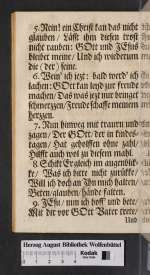 5. Nein! ein Christ kan das nicht
glauben/ Läst ihm diesen trost
nicht rauben: GOtt und JEsus
bleibt meine/ Und ich wiederum
die/der/seine.
6. Wein' ich jezt: bald werd' ich
lachen: GOtt kan leyd zur freude
machen/ Das was jezt mir bringet
schmertzen/ Freude schaffe meinem
hertzen.
7. Nun hinweg mit trauren und
zagen/ Der GOtt/ der in kindes-
tagen/ Hat geholffen ohne zahl/
Hilfft auch wol zu diesem mahl.
8. Schickt Er gleich im augenblic-
ke/ Was ich bitte nicht zurücke/
Will ich doch an Ihn mich halten/
Beten/ glauben/ hände falten.
9. JEsu/ nun ich hoff' und bete/
Mit dir vor GOtt Vater trete/
Und
Herzog August Bibliothek Wolfenbüttel
Kodak